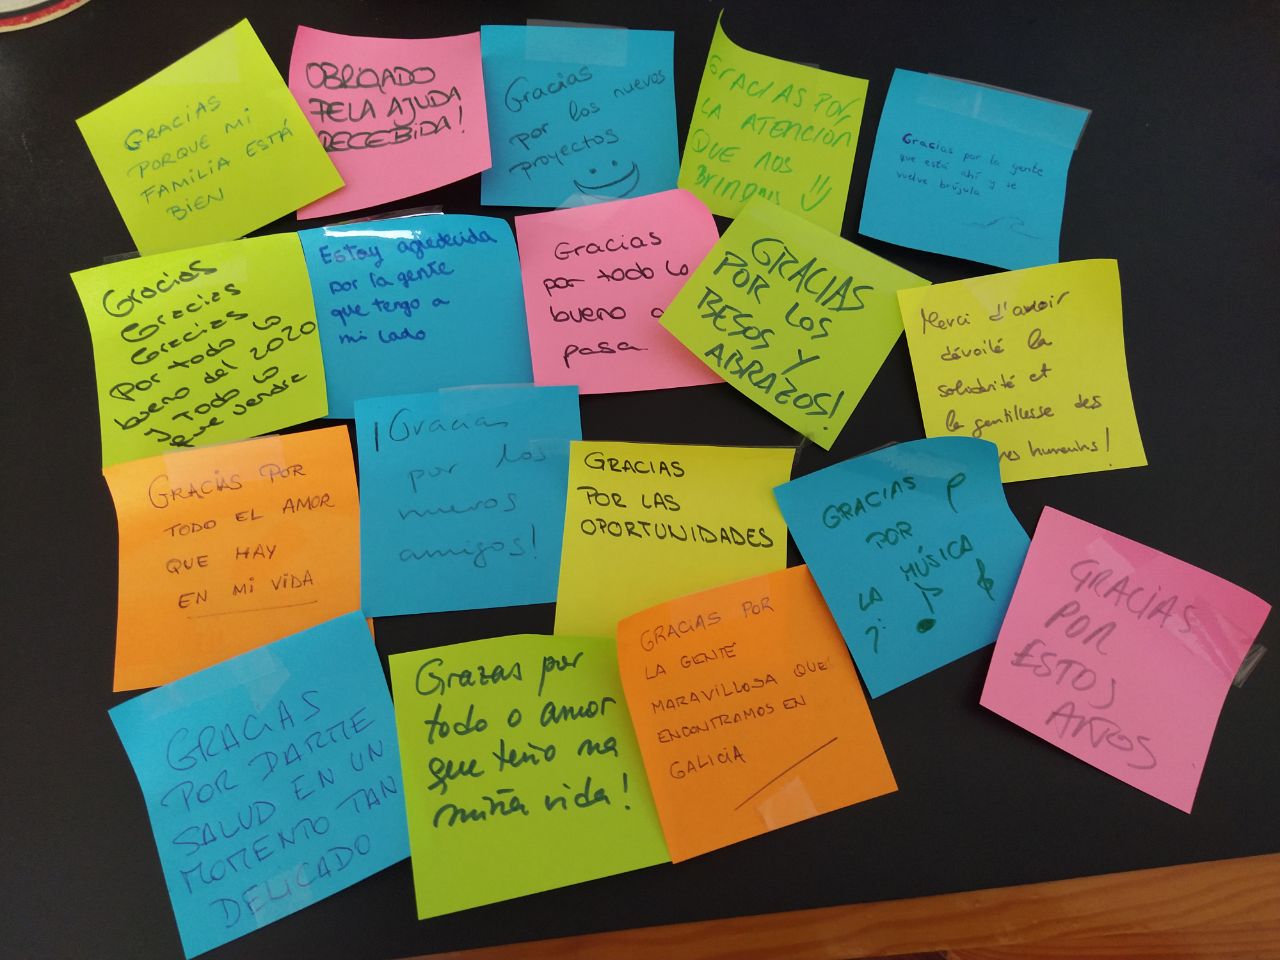 GRACIAS
PORQUE MI
FAMILIA ESTÁ
BIEN
OBRIGADO
PELA AJUDA
RECEBIDA!
Gracias
por los nuevos
proyectos
GRACIAS POR
LA ATENCIÓN
QUE NOS
BRINDAIS
Gracias por la gente
que está ahí y se
vuelve brújula
Gracias
Gracias
Gracias
por todo lo
bueno del 2020
y todo lo
que vendrá
Estoy agradecida
por la gente
que tengo a
mi lado
Gracias
por todo lo
bueno q
pasa
GRACIAS
POR LOS
BESOS Y
ABRAZOS!
Merci d'avoir
dévoilé la
solidarité et
la gentillesse des
res humains!
GRACIAS POR
TODO EL AMOR
QUE HAY
EN MI VIDA
¡Gracias
por los
nuevos
amigos!
GRACIAS
POR LAS
OPORTUNIDADES
GRACIAS
POR
LA MÚSICA
GRACIAS
POR
ESTOS
AÑOS
GRACIAS
POR DARME
SALUD EN UN
MOMENTO TAN
DELICADO
Grazas por
todo o amor
que teño na
miña vida!
GRACIAS POR
LA GENTE
MARAVILLOSA QUE
ENCONTRAMOS EN
GALICIA